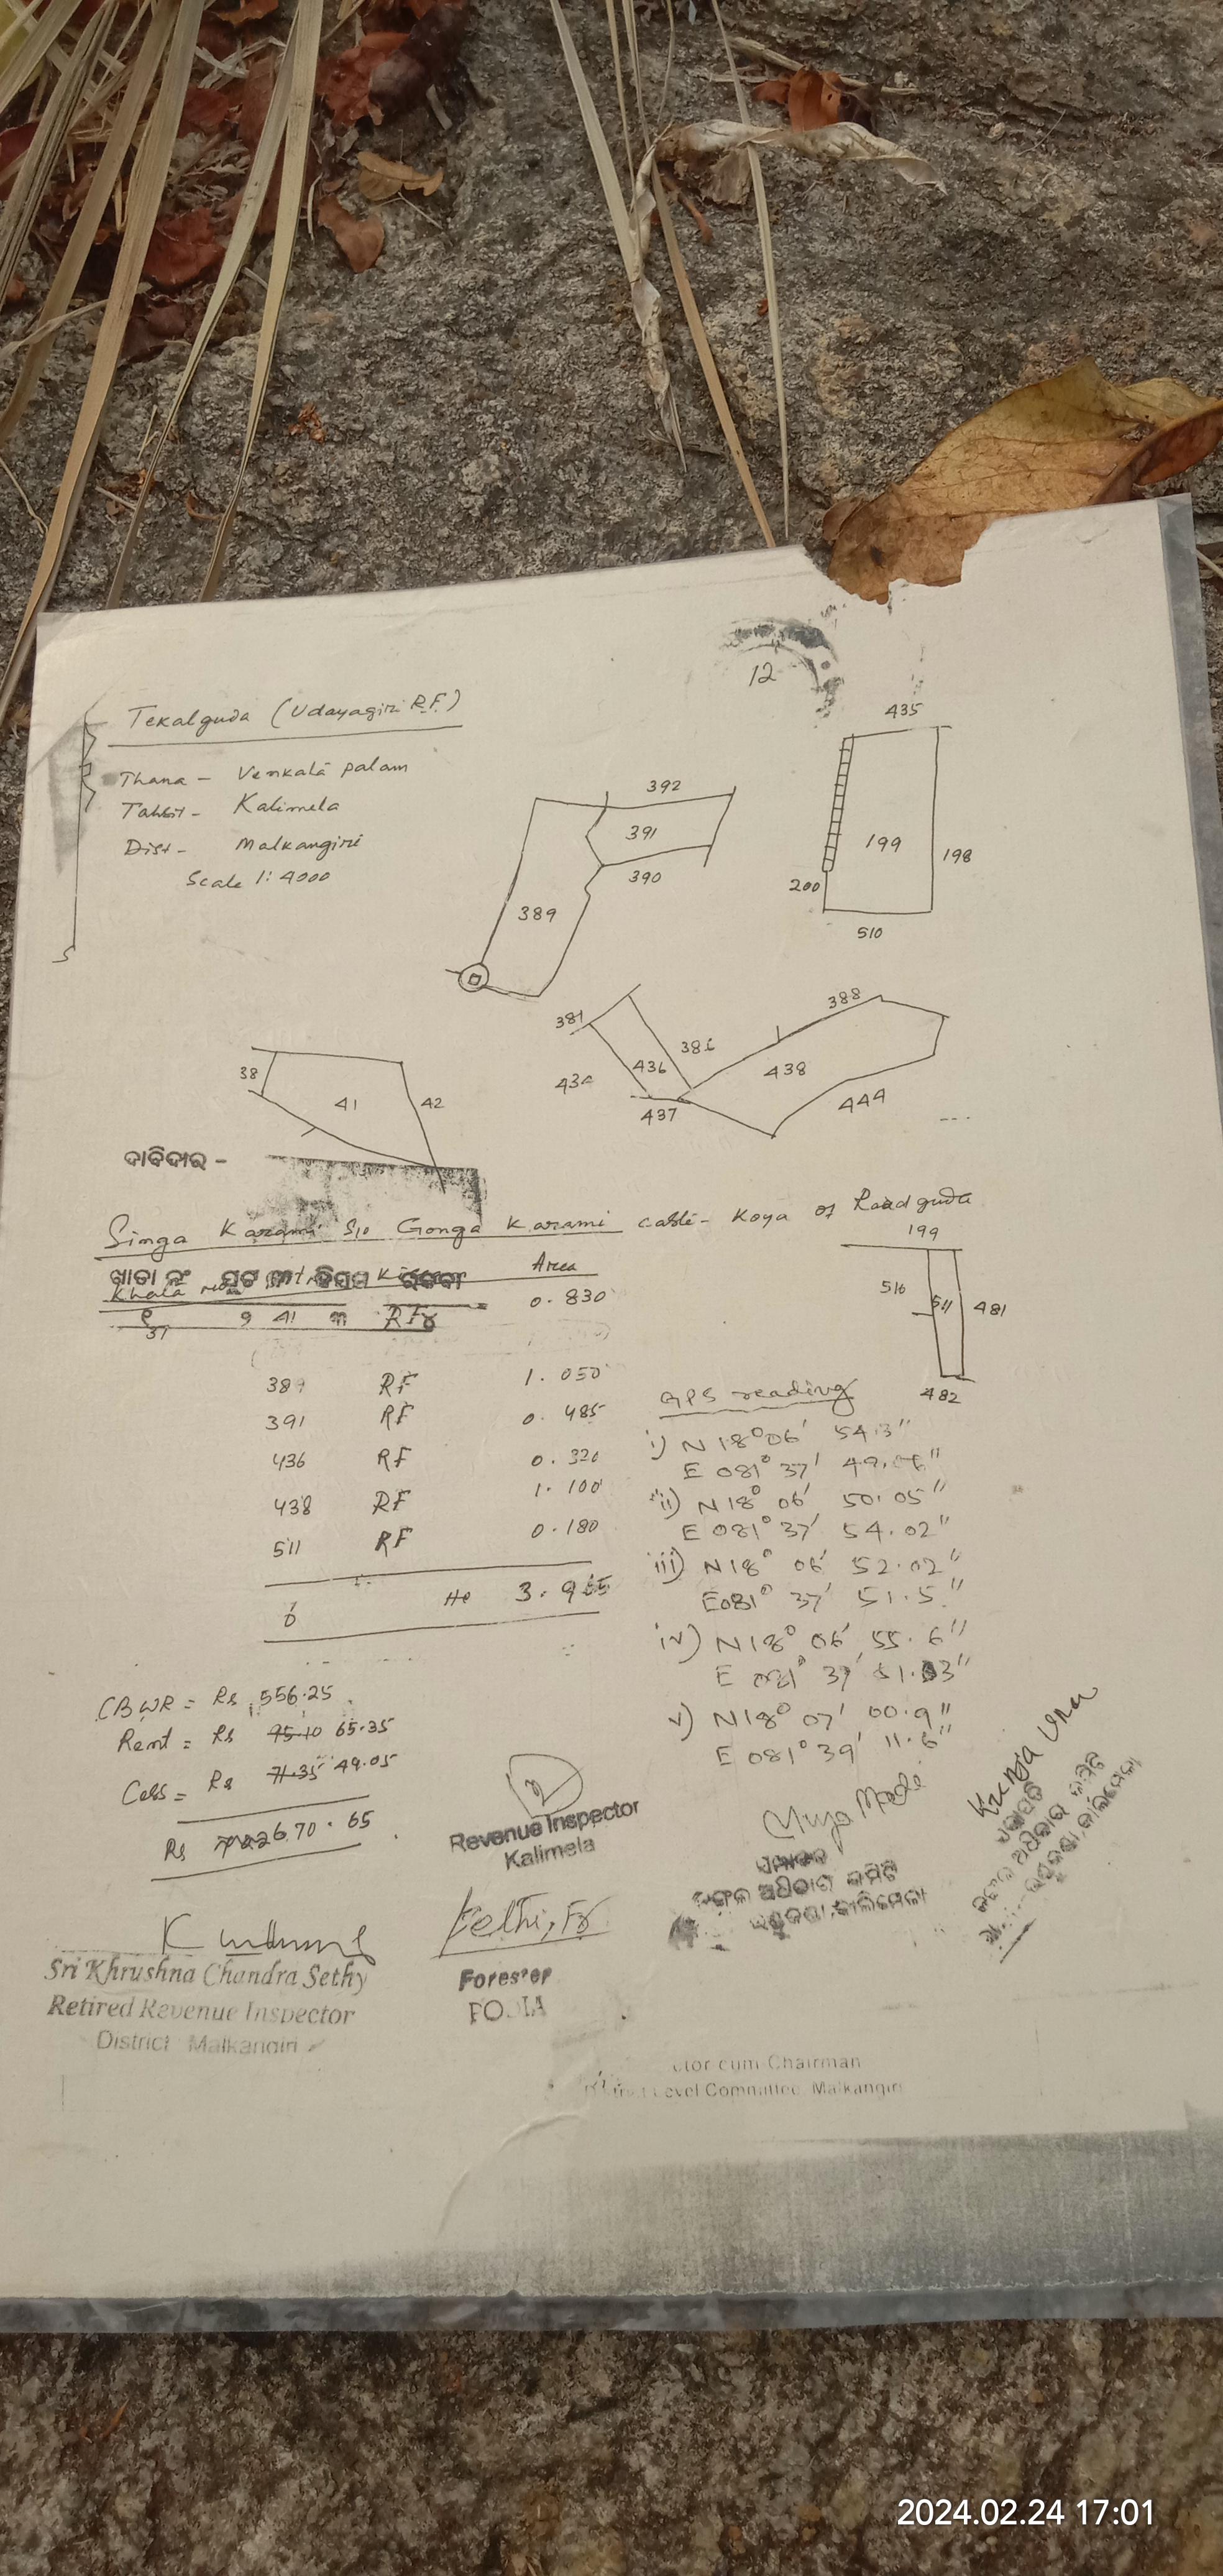 12
Tekalguda (Udayagiri R.F.)
Thana - Venkata palam
Tahsil - Kalimela
Dist - Malkangiri
Scale 1:4000
S
435
199
198
200
510
392
391
390
389
381
386
436
434
437
388
438
444
38
41
42
ଦାବିଦାର -
Singa Karami S/o Gonga Karami caste - Koya of Raadguda
ଖାତା ନଂ ପ୍ଲଟ ନଂ କିସମ ରକବା
Khata no Area
୧ ୨ ୩ ୪
37 41 RF 0.830
389 RF 1.050
391 RF 0.485
436 RF 0.320
438 RF 1.100
511 RF 0.180
6 He 3.965
199
510
511
481
482
GPS reading
i) N 18° 06' 54.3"
E 081° 37' 49."
ii) N 18° 06' 50.05"
E 081° 37' 54.02"
iii) N 18° 06' 52.02"
E 081° 37' 51.5"
iv) N 18° 06' 55.6"
E 081° 37' 51.03"
v) N 18° 07' 00.9"
E 081° 39' 11.6"
CBWR = Rs 556.25
Rent = Rs 95.10 65.35
Cess = Rs 71.35 49.05
Rs 670.65
Revenue Inspector
Kalimela
Sri Khrushna Chandra Sethy
Retired Revenue Inspector
District Malkangiri
Forester
Muya Made
ଜଙ୍ଗଲ ଅଧିକାର କମିଟି
Kunja
ctor cum Chairman
Level Committee, Malkangiri
2024.02.24 17:01